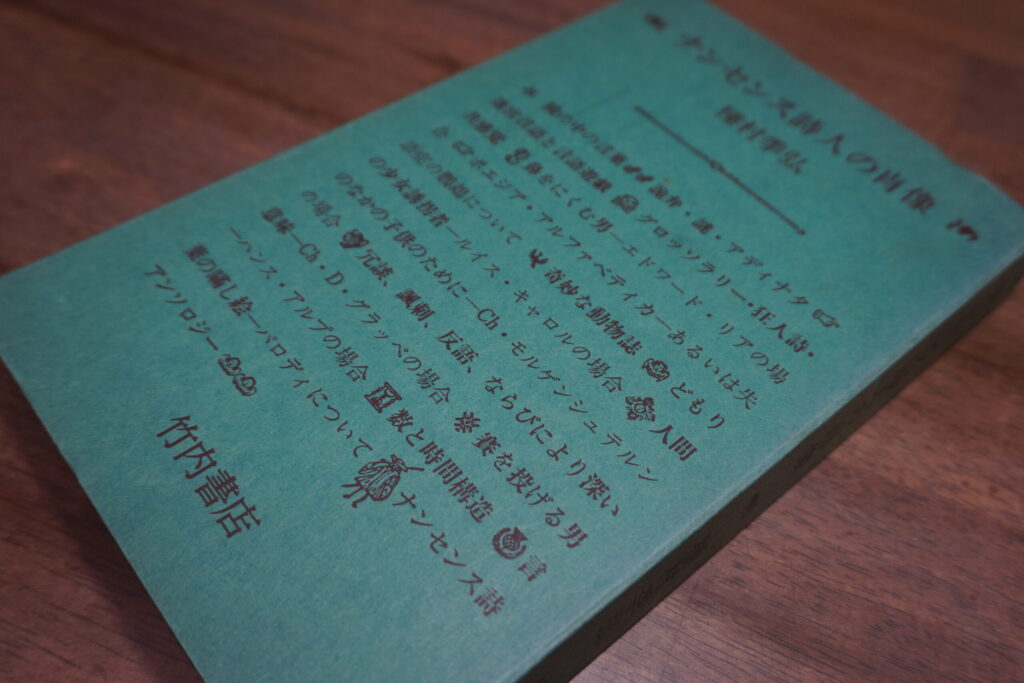 ナンセンス詩人の肖像
種村季弘
の中の言葉 詭弁・謎・アディナタ
迷宮言語と言語遊戯 グロッソラリー・狂人詩・
共感覚 鼻をにくむ男―エドワード・リアの場
合 ポエジア・アルファベティカ―あるいは失
語症の問題について 奇妙な動物誌 どもり
の少女誘拐者―ルイス・キャロルの場合 人間
のなかの子供のために―Ch・モルゲンシュテルン
の場合 冗談、諷刺、反語、ならびにより深い
意味―Ch・D・グラッベの場合 賽を投げる男
―ハンス・アルプの場合 数と時間構造 言
葉の隠し絵―パロディについて ナンセンス詩
アンソロジー
竹内書店